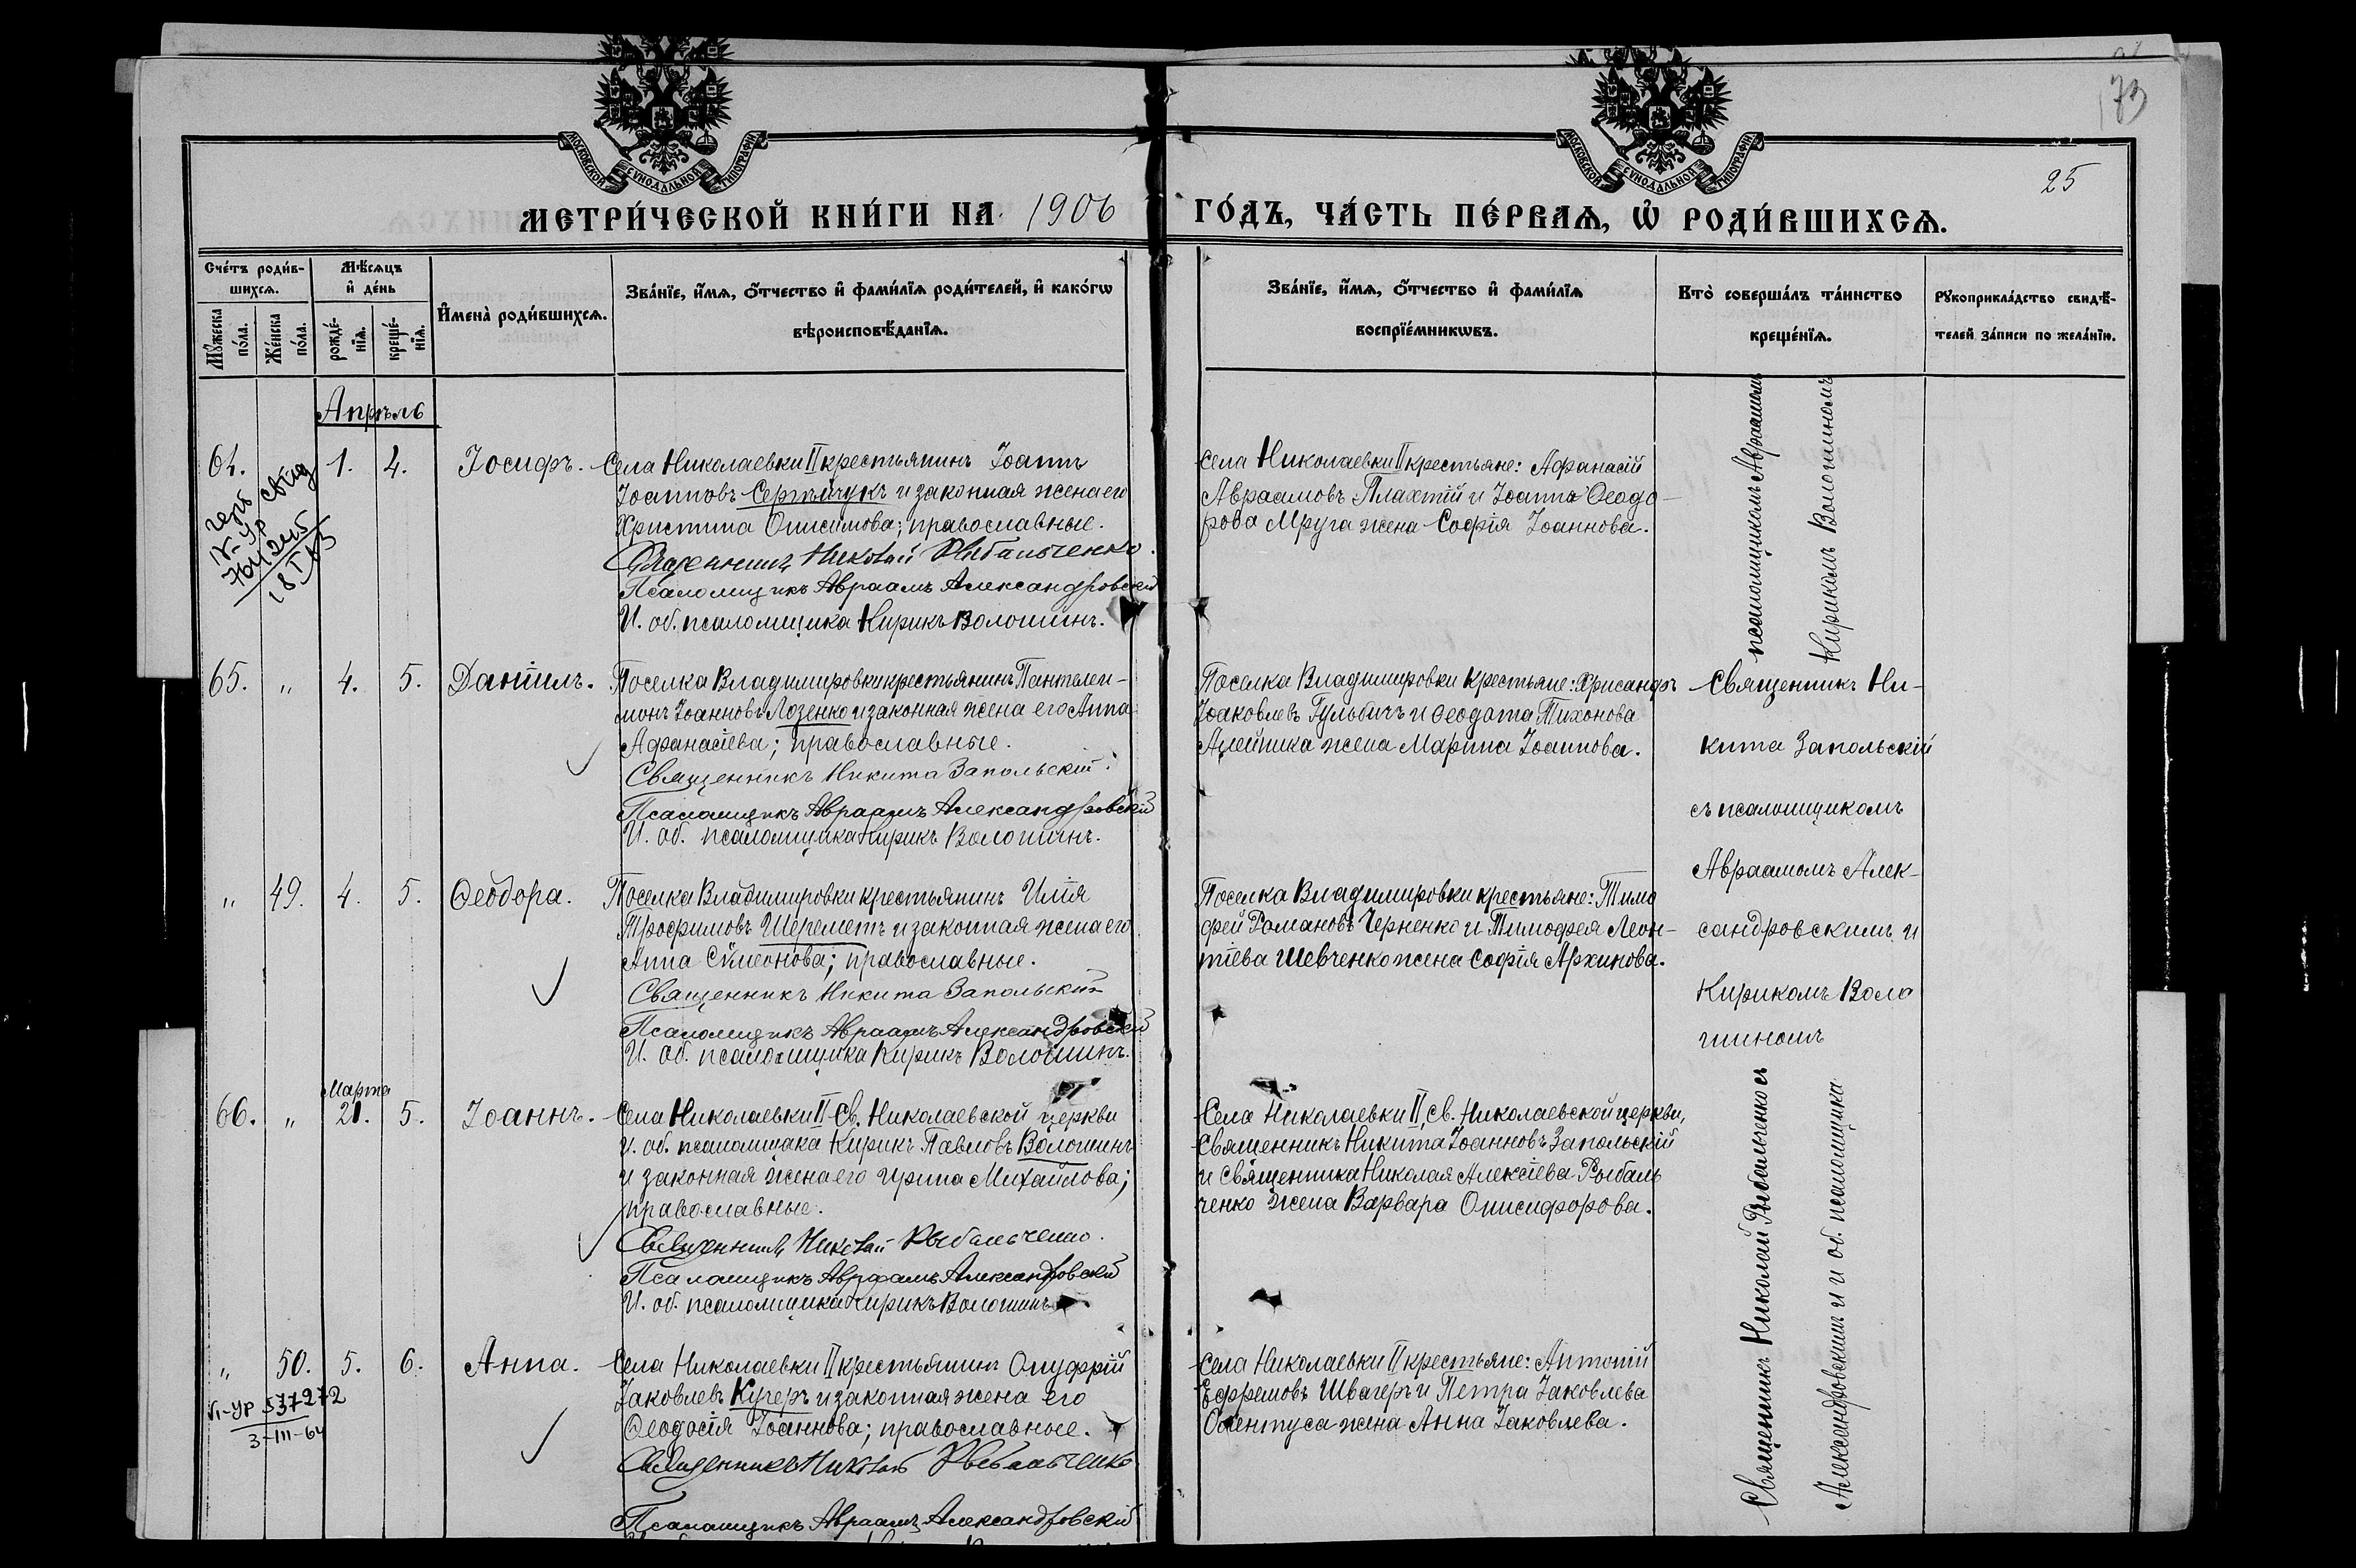 173
25
МОСКОВСКОЙ СѴНОДАЛЬНОЙ ТИПОГРАФІИ
МОСКОВСКОЙ СѴНОДАЛЬНОЙ ТИПОГРАФІИ
МЕТРИ́ЧЕСКОЙ КНИ́ГИ НА 1906 ГО́ДЪ, ЧА́СТЬ ПЕ́РВАѦ, Ѡ҆ РОДИ́ВШИХСѦ.
Сче́тъ роди́в-
шихсѧ.
Мꙋ́жеска по́ла.
Же́нска по́ла.
Мѣ́сѧцъ
и҆ де́нь
рожде́-
нїѧ.
креще́-
нїѧ.
И҆мена̀ роди́вшихсѧ.
Зва́нїе, и҆́мѧ, ѻ҆́тчество и҆ фами́лїѧ роди́телей, и҆ како́гѡ
вѣроисповѣ́данїѧ.
Зва́нїе, и҆́мѧ, ѻ҆́тчество и҆ фами́лїѧ
воспрїе́мникѡвъ.
Кто̀ соверша́лъ та́инство
креще́нїѧ.
Рꙋкоприкла́дство свидѣ́-
телей за́писи по жела́нїю.
Апрѣль
64. 1. 4. Іосифъ.
Села Николаевки II крестьянинъ Іоаннъ
Іоанновъ Сергѣйчукъ и законная жена его
Христина Онисимова; православные.
Священникъ Николай Рыбальченко.
Псаломщикъ Авраамъ Александровскій
И. об. псаломщика Кирикъ Волошинъ.
Села Николаевки II крестьяне: Афанасій
Авраамовъ Плахтій и Іоанна Ѳеодо-
рова Мруга жена Софія Іоаннова.
псаломщикомъ Авраамомъ
Кирикомъ Волошиномъ
65. " 4. 5. Даніилъ.
Поселка Владимировки крестьянинъ Пантелеи-
монъ Іоанновъ Лозенко и законная жена его Анна
Афанасіева; православные.
Священникъ Никита Запольскій.
Псаломщикъ Авраамъ Александровскій
И. об. псаломщика Кирикъ Волошинъ.
Поселка Владимировки крестьяне: Хрисанфъ
Іоаковлевъ Гульбичъ и Ѳеодота Тихонова
жена Марина Іоаннова.
Священникъ Ни-
кита Запольскій
съ псаломщикомъ
Авраамомъ Алек-
сандровскимъ и
Кирикомъ Воло
шиномъ
" 49. 4. 5. Ѳеодора.
Поселка Владимировки крестьянинъ Илія
Трофимовъ Шереметъ и законная жена его
Анна Сѵмеонова; православные.
Священникъ Никита Запольскій
Псаломщикъ Авраамъ Александровскій
И. об. псаломщика Кирикъ Волошинъ.
Поселка Владимировки крестьяне: Тимо
фей Романовъ Черненко и Тимофея Леон-
тіева Шевченко жена Софія Архипова.
Марта
66. " 21. 5. Іоаннъ.
Села Николаевки II Св. Николаевской церкви
и. об. псаломщика Кирикъ Павловъ Волошинъ
и законная жена его Ирина Михайлова;
православные.
Священникъ Николай Рыбальченко.
Псаломщикъ Авраамъ Александровскій
И. об. псаломщика Кирикъ Волошинъ
Села Николаевки II, Св. Николаевской церкви,
Священникъ Никита Іоанновъ Запольскій
и Священника Николая Алексіева Рыбаль
ченко жена Варвара Онисифорова.
Священникъ Николай Рыбальченко съ
Александровскимъ и и об. псаломщика
" 50. 5. 6. Анна.
VI-УР 537272
3-III-64
Села Николаевки II крестьянинъ Онуфрій
Іаковлевъ Кучеръ и законная жена его
Ѳеодосія Іоаннова; православные.
Священникъ Николай Рыбальченко
Псаломщикъ Авраамъ Александровскій
Села Николаевки II крестьяне: Антоній
Ефремовъ Швагеръ и Петра Іаковлева
жена Анна Іаковлева.